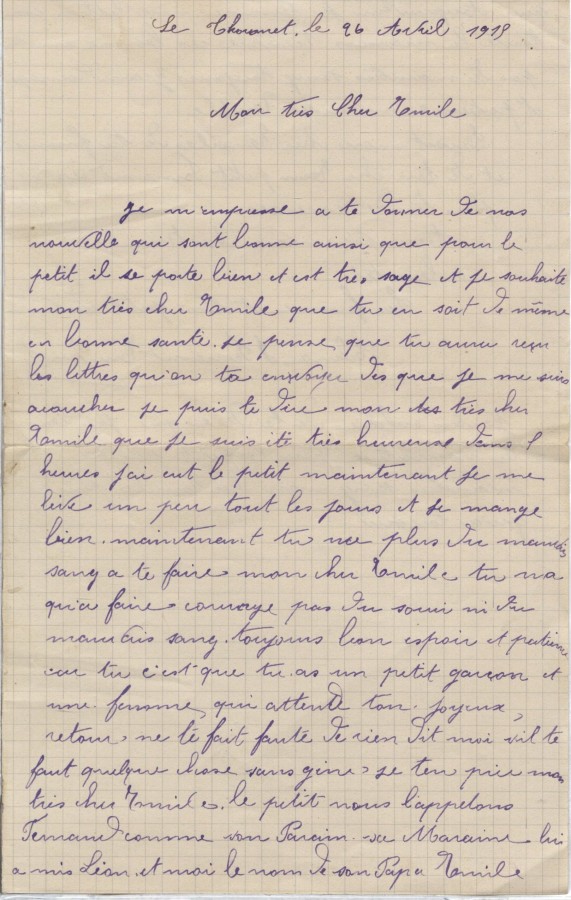 Le Thoronet. le 26 Avril 1918
Mon très Cher Emile
Je m'empresse a te donner de nos
nouvelle qui sont bonne ainsi que pour le
petit il se porte bien et est tres sage et je souhaite
mon très cher Emile que tu en soit de même
en bonne santé. je pense que tu aura reçu
les lettres qu'on ta envoyer des que je me suis
acoucher je puis te dire mon très cher
Emile que je suis été très heureuse dans
heures j'ai eut le petit maintenant je me
lève un peu tout les jours et je mange
bien. maintenant tu nee plus du mauvais
sang a te faire mon cher Emile tu na
qu'a faire courage pas du souci ni du
mauvais sang. toujours bon espoir et patience
car tu c'est que tu as un petit garçon et
une femme qui attende ton joyeux
retour ne té fait fauté de rien dit moi s'il te
faut quelque chose sans gène je ten prie mon
très cher Emile. le petit nous l'appelons
Fernand comme son Parain sa Maraine lui
a mis Léon et moi le nom de son Papa Emile